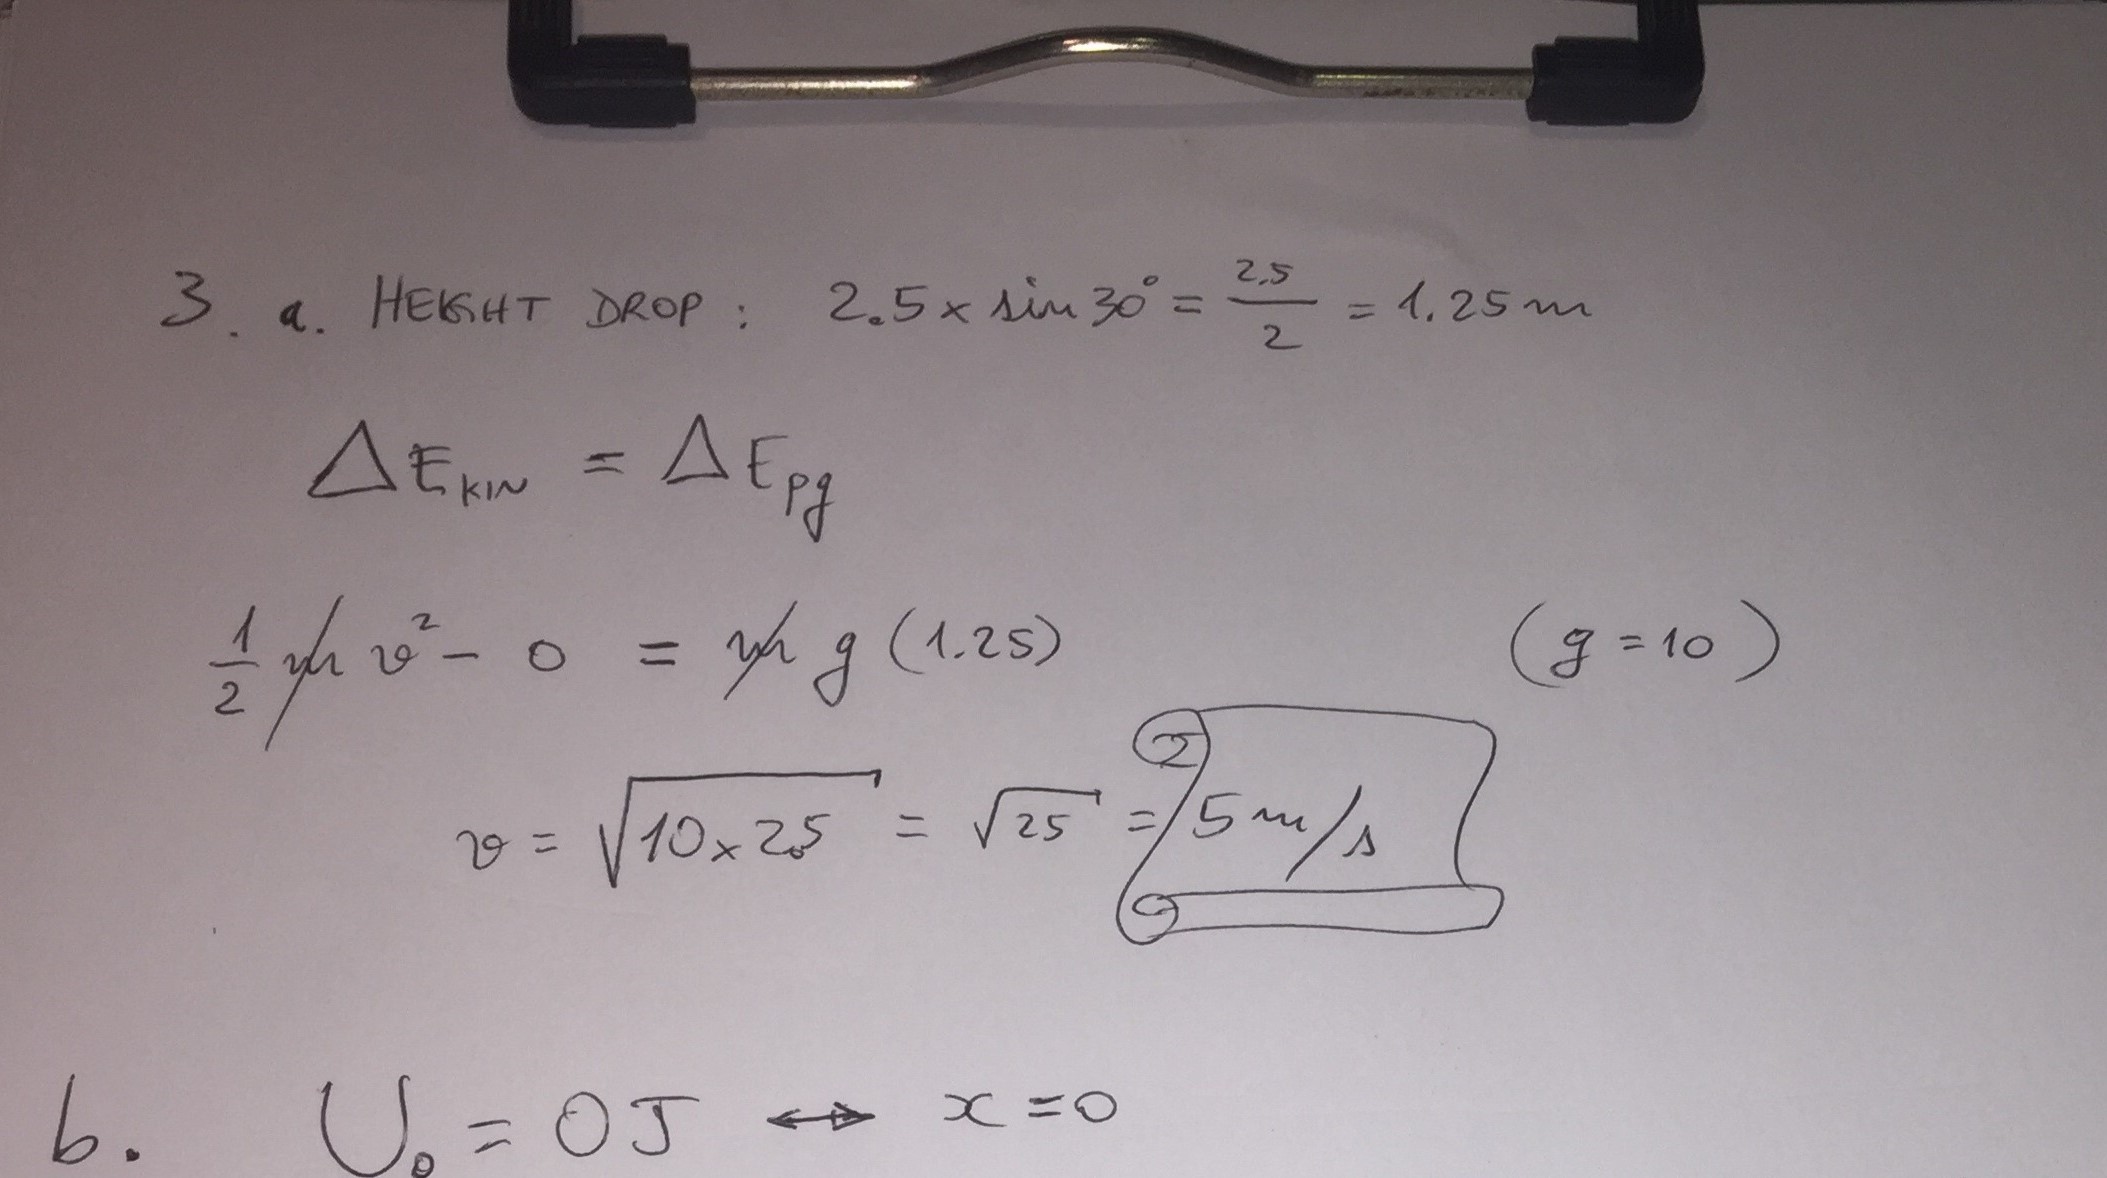 3. a. HEIGHT DROP : 2.5 x sin 30° = 2.5/2 = 1.25 m
ΔE_KIN = ΔE_pg
1/2 m v² - 0 = m g (1.25) (g = 10)
v = √(10 x 2.5) = √25 = 5 m/s
b. U₀ = 0 J ↔ x = 0